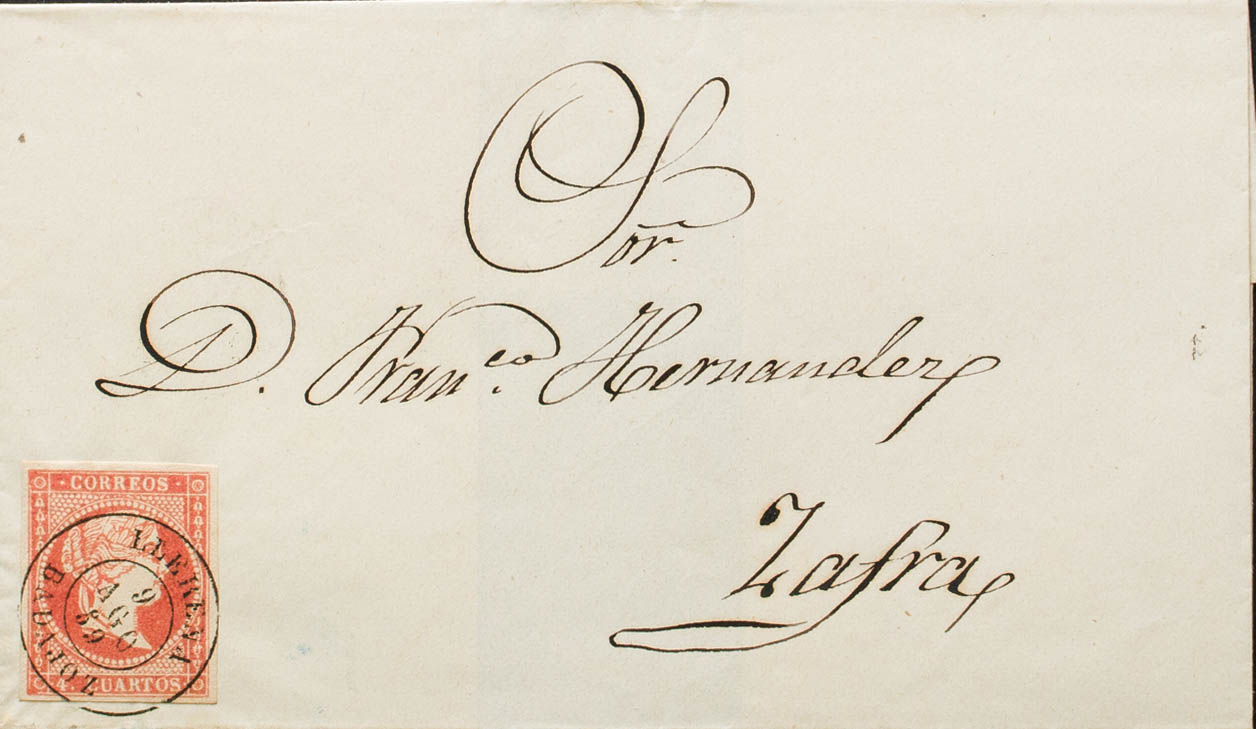 Sor.
D. Franco. Hernandez
Zafra
CORREOS
LLERENA
9
AGO
59
BADAJOZ
4. CUARTOS